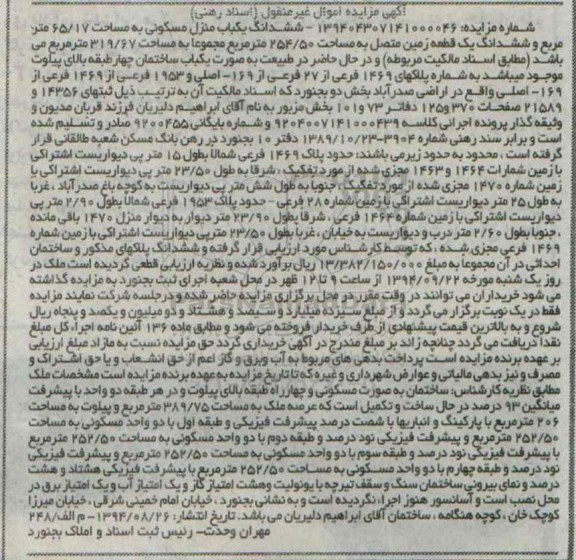 آگهی مزایده اموال غیرمنقول (اسناد رهنی)
شماره مزایده: ۱۳۹۴۰۴۳۰۷۱۴۱۰۰۰۰۴۶ – ششدانگ یکباب منزل مسکونی به مساحت ۶۵/۱۷ متر
مربع و ششدانگ یک قطعه زمین متصل به مساحت ۲۵۴/۵۰ مترمربع مجموعا به مساحت ۳۱۹/۶۷ مترمربع می
باشد (مطابق اسناد مالکیت مربوطه) و در حال حاضر در طبیعت به صورت یکباب ساختمان چهارطبقه بالای پیلوت
موجود میباشد به شماره پلاکهای ۱۴۶۹ فرعی از ۲۷ فرعـی از ۱۶۹- اصلی و ۱۹۵۳ فرعـی از ۱۴۶۹ فرعی از
۱۶۹- اصلـی واقـع در اراضی صدرآباد بخش دو بجنورد که اسـناد مالکیت آن به ترتیـب ذیل ثبتهای ۱۴۳۵۶ و
۲۱۵۸۹ صفحـات ۳۷۰ و ۱۲۵ دفاتـر ۷۳ و ۱۰۱ بخش مزبور به نام آقای ابراهیم دلیریان فرزند قربان مدیون و
وثیقه گذار پرونده اجرائی کلاسه ۹۲۰۴۰۰۷۱۴۱۰۰۰۴۳۹ و شماره بایگانی ۹۲۰۰۴۵۵ صادر و تسلیم شده
است و برابر سند رهنی شماره ۳۹۰۴-۱۳۸۹/۱۰/۲۳ دفتر ۱۰ بجنورد در رهن بانک مسکن شعبه طالقانی قرار
گرفته است ، محدود به حدود زیر می باشند: حدود پلاک ۱۴۶۹ فرعی شمالا بطول ۱۵ متر پی دیواریست اشتراکی
با زمین شمارات ۱۴۶۴ و ۱۴۶۳ مجزی شده از مورد تفکیک ، شرقا به طول ۲۳/۵۰ متر پی دیواریست اشتراکی با
زمین شماره ۱۴۷۰ مجزی شده از مورد تفکیک ، جنوبا به طول شش متر پی دیواریست به کوچه باغ صدرآباد ، غربا
به طول ۲۵ متر دیواریست اشتراکی با زمین شماره ۲۸ فرعی – حدود پلاک ۱۹۵۳ فرعی شمالا بطول ۲/۹۰ متر پی
دیواریست اشتراکی با زمین شماره ۱۴۶۴ فرعی ، شرقا بطول ۲۳/۹۰ متر دیوار به دیوار منزل ۱۴۷۰ باقی مانده
، جنوبا بطول ۲/۶۰ متر درب و دیواریست به خیابان ، غربا بطول ۲۳/۵۰ متر پی دیواریست اشتراکی با زمین شماره
۱۴۶۹ فرعی مجزی شده ، که توسط کارشناس مورد ارزیابی قرار گرفته و ششدانگ پلاکهای مذکور و ساختمان
احداثی در آن مجموعا به مبلغ ۱۳/۳۸۲/۱۵۰/۰۰۰ ریال برآورد شده و نظریه ارزیابی قطعی گردیده است ملک در
روز یک شنبه مورخه ۱۳۹۴/۰۹/۲۲ از ساعت ۹ تا ۱۲ ظهر در محل شعبه اجرای ثبت بجنورد به مزایده گذاشته
می شود خریداران می توانند در وقت مقرر در محل برگزاری مزایده حاضر شده و در جلسه شرکت نمایند مزایده
فقط در یک نوبت برگزار می گردد و از مبلغ سـیزده میلیارد و سـیصد و هشـتاد و دو میلیون و یکصد و پنجاه ریال
شروع و به بالاترین قیمت پیشنهادی از طرف خریدار فروخته می شود و مطابق ماده ۱۳۶ آئین نامه اجرا، کل مبلغ
نقدا دریافت می گردد چنانچه زائد بر مبلغ مندرج در آگهی خریداری گردد حق مزایده نسبت به مازاد مبلغ ارزیابی
بر عهده برنده مزایده است پرداخت بدهی های مربوط به آب و برق و گاز اعم از حق انشعاب و یا حق اشتراک و
مصرف و نیز بدهی مالیاتی و عوارض شهرداری و غیره که تا تاریخ مزایده به عهده برنده مزایده است مشخصات ملک
مطابق نظریه کارشناس: ساختمان به صورت مسکونی و چهارراه طبقه بالای پیلوت و در هر طبقه دو واحد با پیشرفت
میانگین ۹۳ درصد در حال ساخت و تکمیل است که عرصه ملک به مساحت ۳۸۹/۷۵ مترمربع و پیلوت به مساحت
۲۰۶ مترمربع با پارکینگ و انباریها با شصت درصد پیشرفت فیزیکی و طبقه اول با دو واحد مسکونی به مساحت
۲۵۲/۵۰ مترمربع و پیشرفت فیزیکی نود درصد و طبقه دوم با دو واحد مسکونی به مساحت ۲۵۲/۵۰ مترمربع
با پیشرفت فیزیکی نود درصد و طبقه سوم با دو واحد مسکونی به مساحت ۲۵۲/۵۰ مترمربع و پیشرفت فیزیکی
نود درصد و طبقه چهارم با دو واحد مسـکونی به مساحت ۲۵۲/۵۰ مترمربع با پیشرفت فیزیکی هشتاد و هشت
درصد و نمای بیرونی ساختمان سنگ و سقف تیرچه با یونولیت و هشت امتیاز گاز و یک امتیاز آب و یک امتیاز برق در
محل نصب است و آسانسور هنوز اجرا، نگردیده است و به نشانی بجنورد ، خیابان امام خمینی شرقی ، خیابان میرزا
کوچک خان ، کوچه هنگامه ، ساختمان آقای ابراهیم دلیریان می باشد. تاریخ انتشار: ۱۳۹۴/۰۸/۲۶ – م الف/۲۴۸
مهران وحدت– رئیس ثبت اسناد و املاک بجنورد